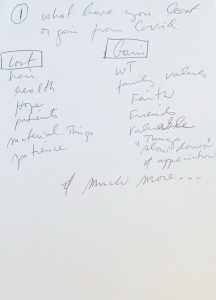 1 what have you lost
or gain from Covid
Lost
hair
health
Hope
patients
material things
patience
Gain
WT
family values
Faith
Friends
valuable
"Things
slow down"
of appreciation
& much more...